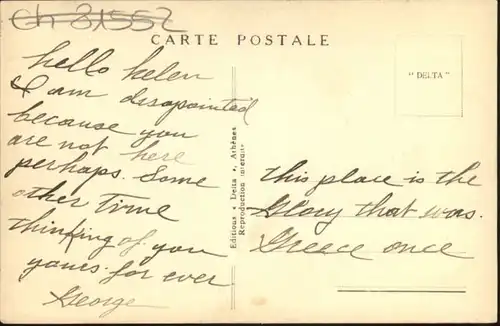 Ch 81552
CARTE POSTALE
"DELTA"
hello helen
I am disapointed
because you
are not here
perhaps. Some
other Time
thinking of you
yours for ever
George
Editions « Delta », Athènes
Reproduction interdite
this place is the
Glory that was.
Greece once